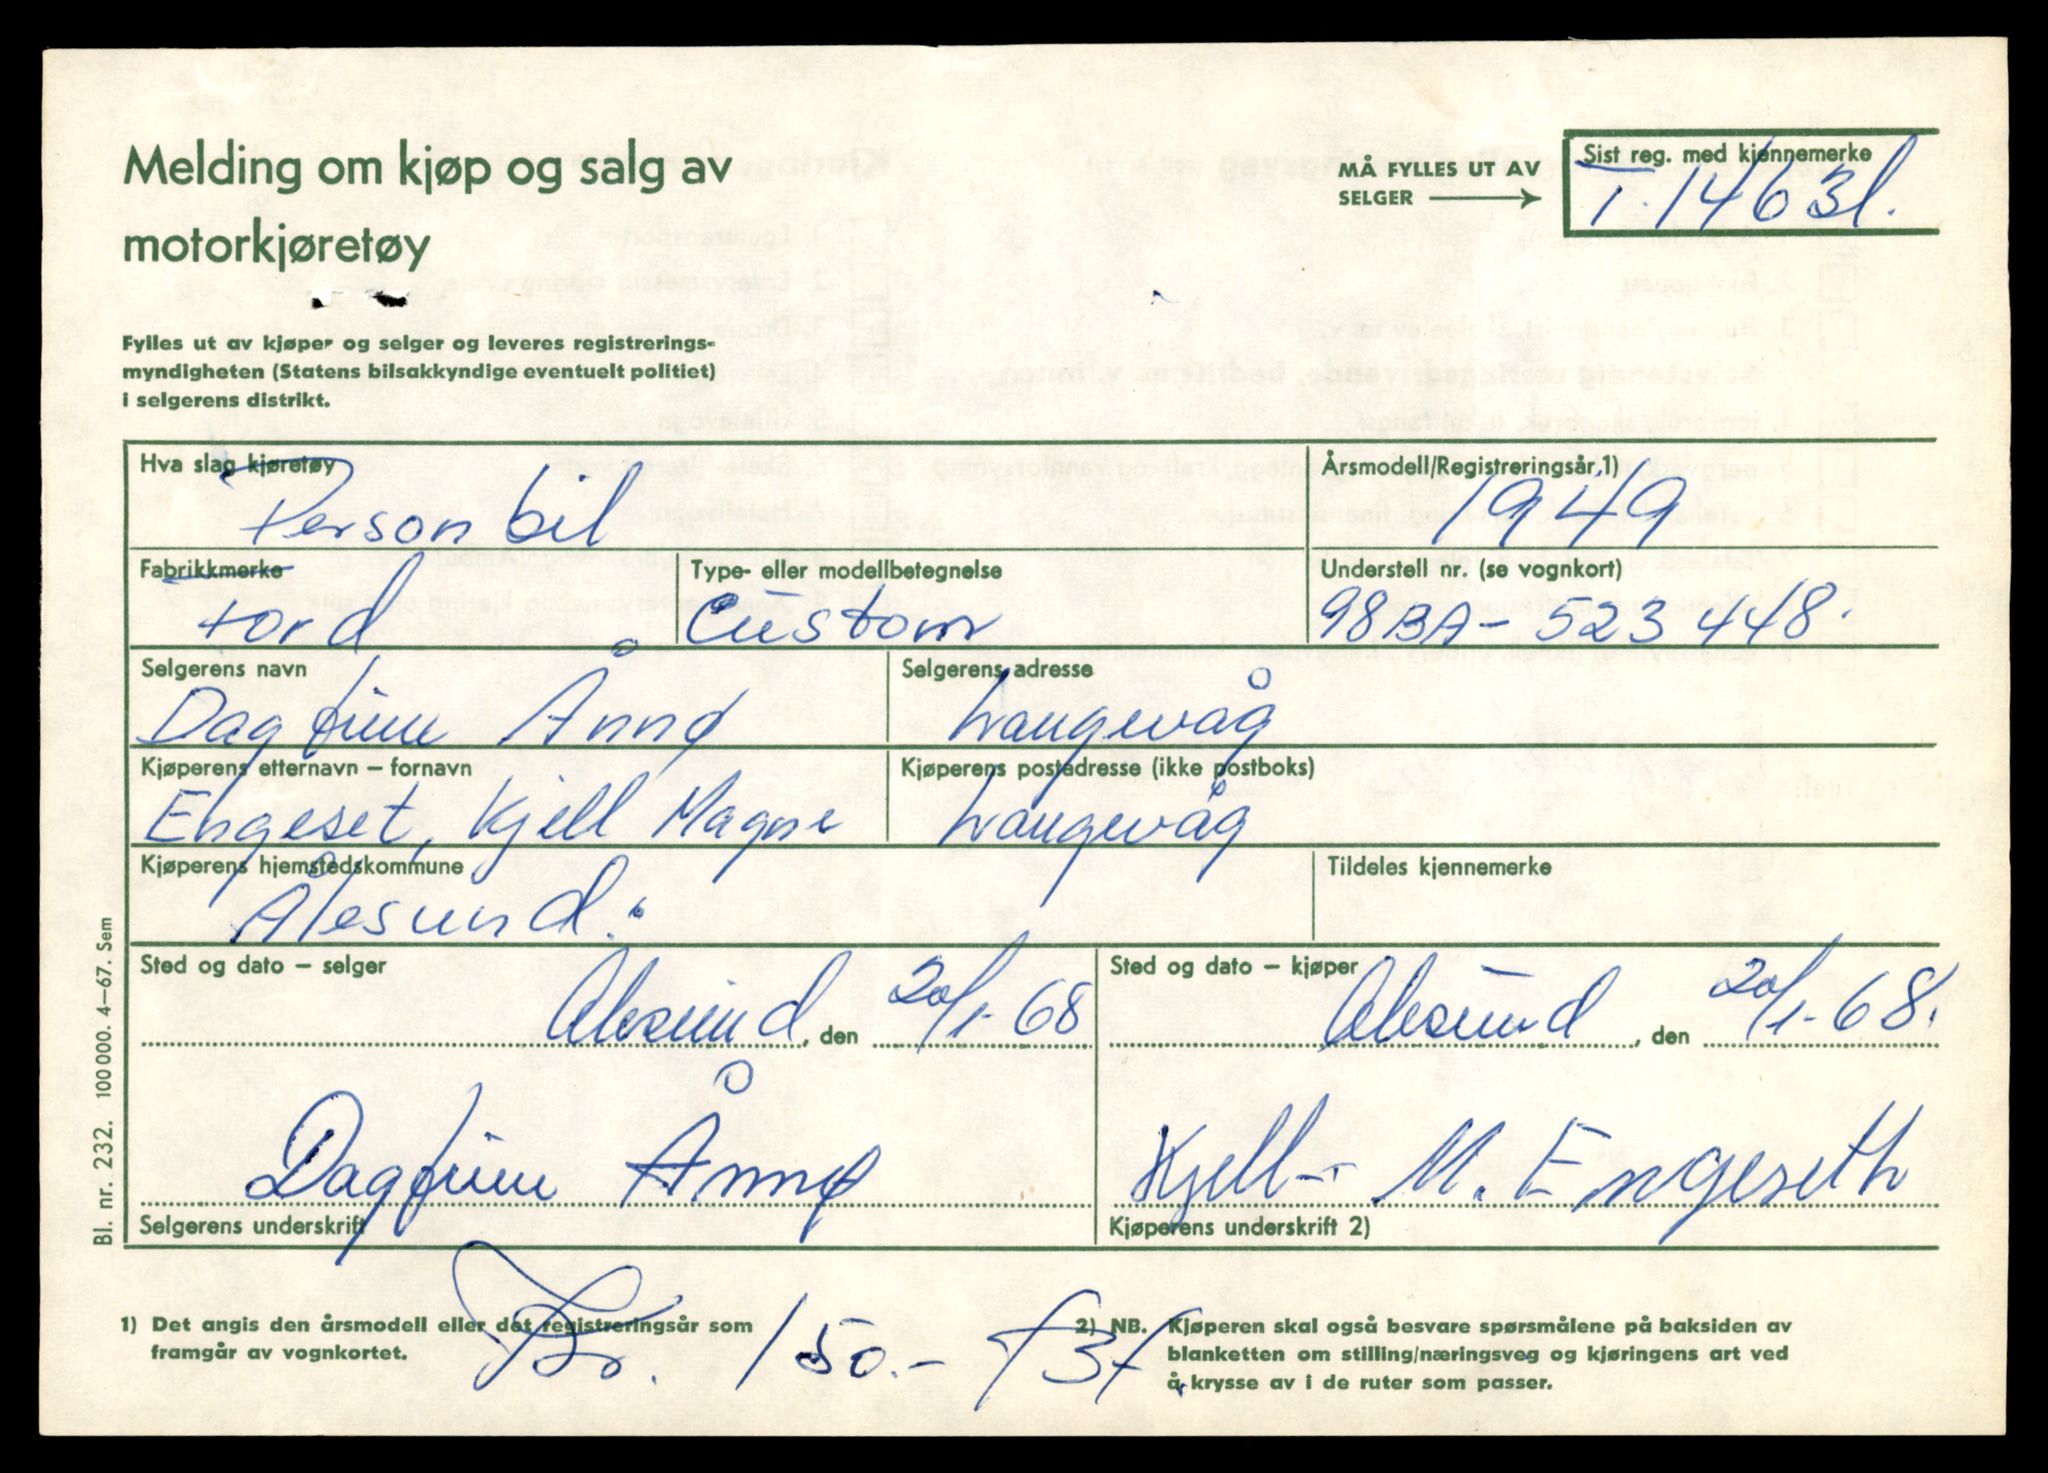 Melding om kjøp og salg av
motorkjøretøy
MÅ FYLLES UT AV
SELGER
Sist reg. med kjennemerke
T-14631.
Fylles ut av kjøper og selger og leveres registrerings-
myndigheten (Statens bilsakkyndige eventuelt politiet)
i selgerens distrikt.
Hva slag kjøretøy
Personbil
Årsmodell/Registreringsår,1)
1949
Fabrikkmerke
Ford
Type- eller modellbetegnelse
Custom
Understell nr. (se vognkort)
98BA-523448.
Selgerens navn
Dagfinn Ånnø
Selgerens adresse
Langevåg
Kjøperens etternavn – fornavn
Engeset, Kjell Magne
Kjøperens postadresse (ikke postboks)
Langevåg
Kjøperens hjemstedskommune
Ålesund.
Tildeles kjennemerke
Sted og dato – selger
Ålesund, den 20/1-68
Sted og dato – kjøper
Ålesund, den 20/1-68.
Dagfinn Ånnø
Selgerens underskrift
Kjell- M. Engeseth
Kjøperens underskrift 2)
Bl. nr. 232. 100 000. 4–67. Sem
Kr. 150.-
1) Det angis den årsmodell eller det registreringsår som
framgår av vognkortet.
2) NB. Kjøperen skal også besvare spørsmålene på baksiden av
blanketten om stilling/næringsveg og kjøringens art ved
å krysse av i de ruter som passer.